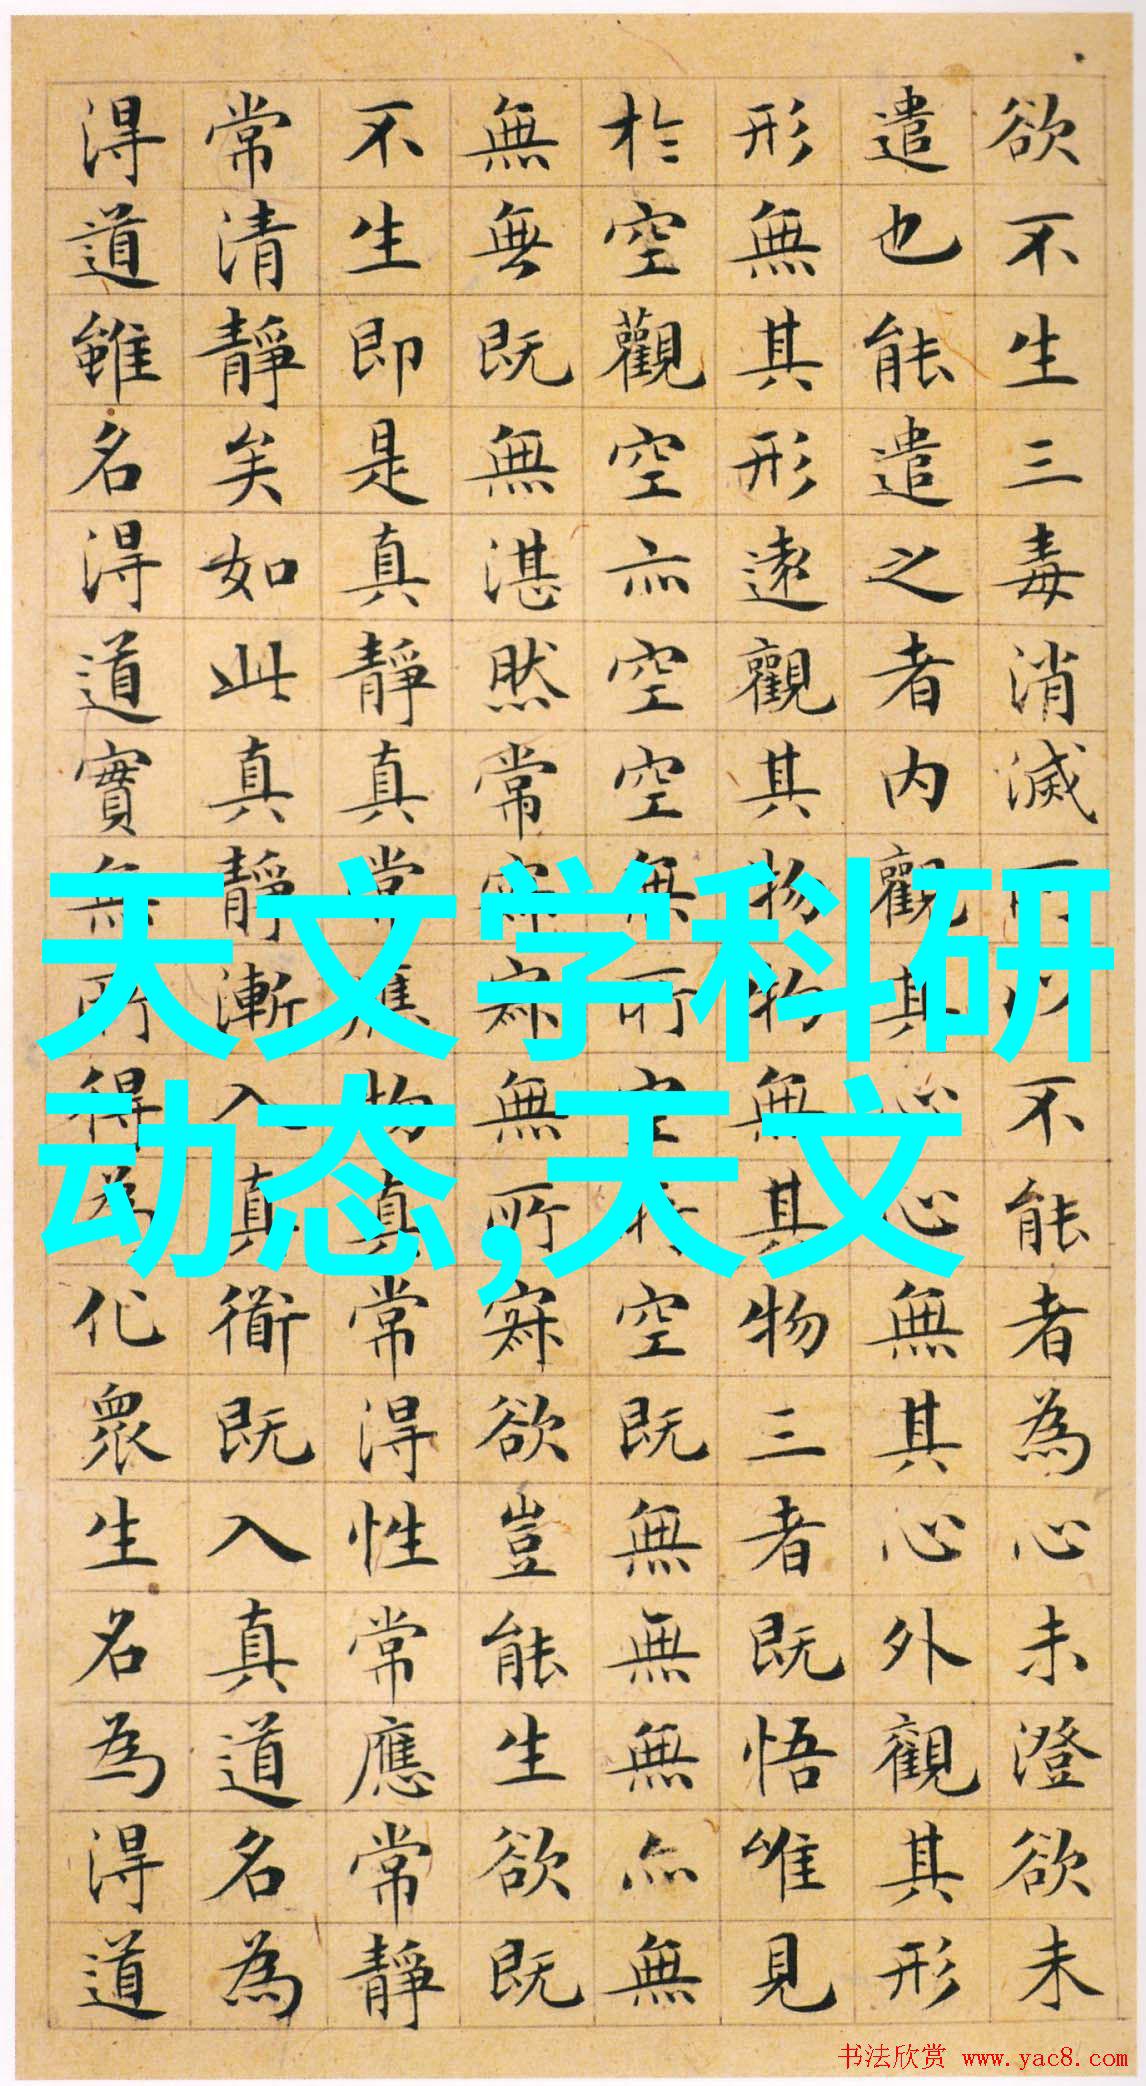 欲不生三毒消滅所以不能者為心未澄欲未
遣也能遣之者内觀其心心無其心外觀其形
形無其形遠觀其物物無其物三者既悟唯見
於空觀空亦空空無所空所空既無無無亦無
無無既無湛然常寂寂無所寂欲豈能生欲既
不生即是真靜真常應物真常得性常應常靜
常清靜矣如此真靜漸入真衜既入真道名為
得道雖名得道實無所得為化眾生名為得道
天文学科研
动态,天文
书法欣赏 www.yac8.com